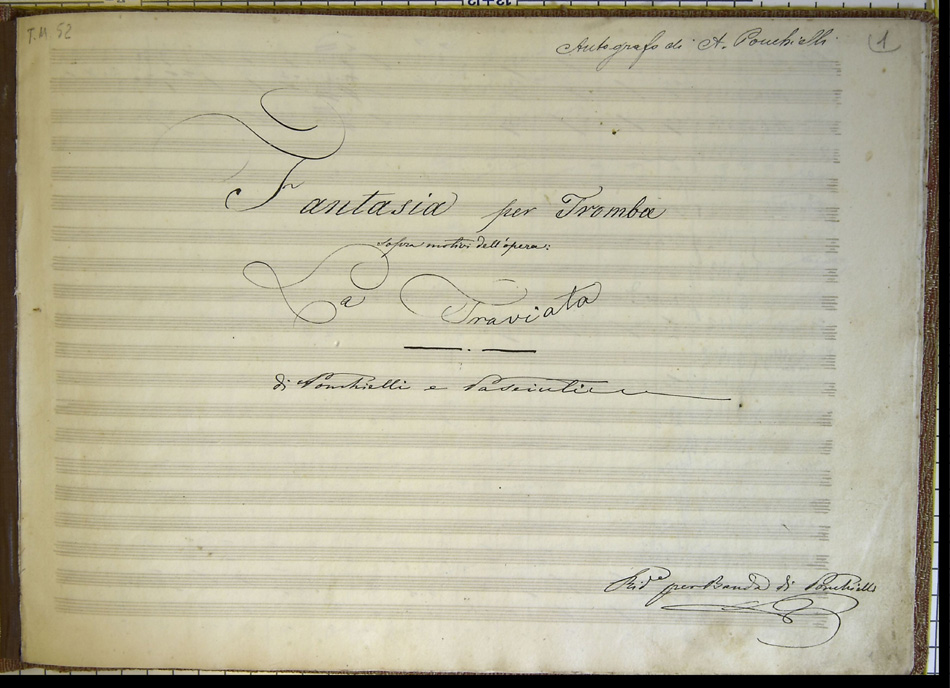 T.M 52
Autografo di A. Ponchielli
1
Fantasia per Tromba
sopra motivi dell'opera:
La Traviata
di Ponchielli e Pasciuti
Rid.e per Banda di Ponchielli